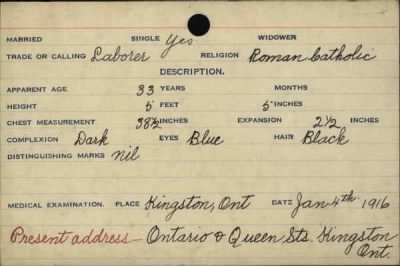 MARRIED SINGLE Yes WIDOWER
TRADE OR CALLING Laborer RELIGION Roman Catholic
DESCRIPTION.
APPARENT AGE 33 YEARS MONTHS
HEIGHT 5 FEET 5 INCHES
CHEST MEASUREMENT 38½ INCHES EXPANSION 2½ INCHES
COMPLEXION Dark EYES Blue HAIR Black
DISTINGUISHING MARKS nil
MEDICAL EXAMINATION. PLACE Kingston, Ont DATE Jan 4th 1916
Present address — Ontario & Queen Sts. Kingston
Ont.